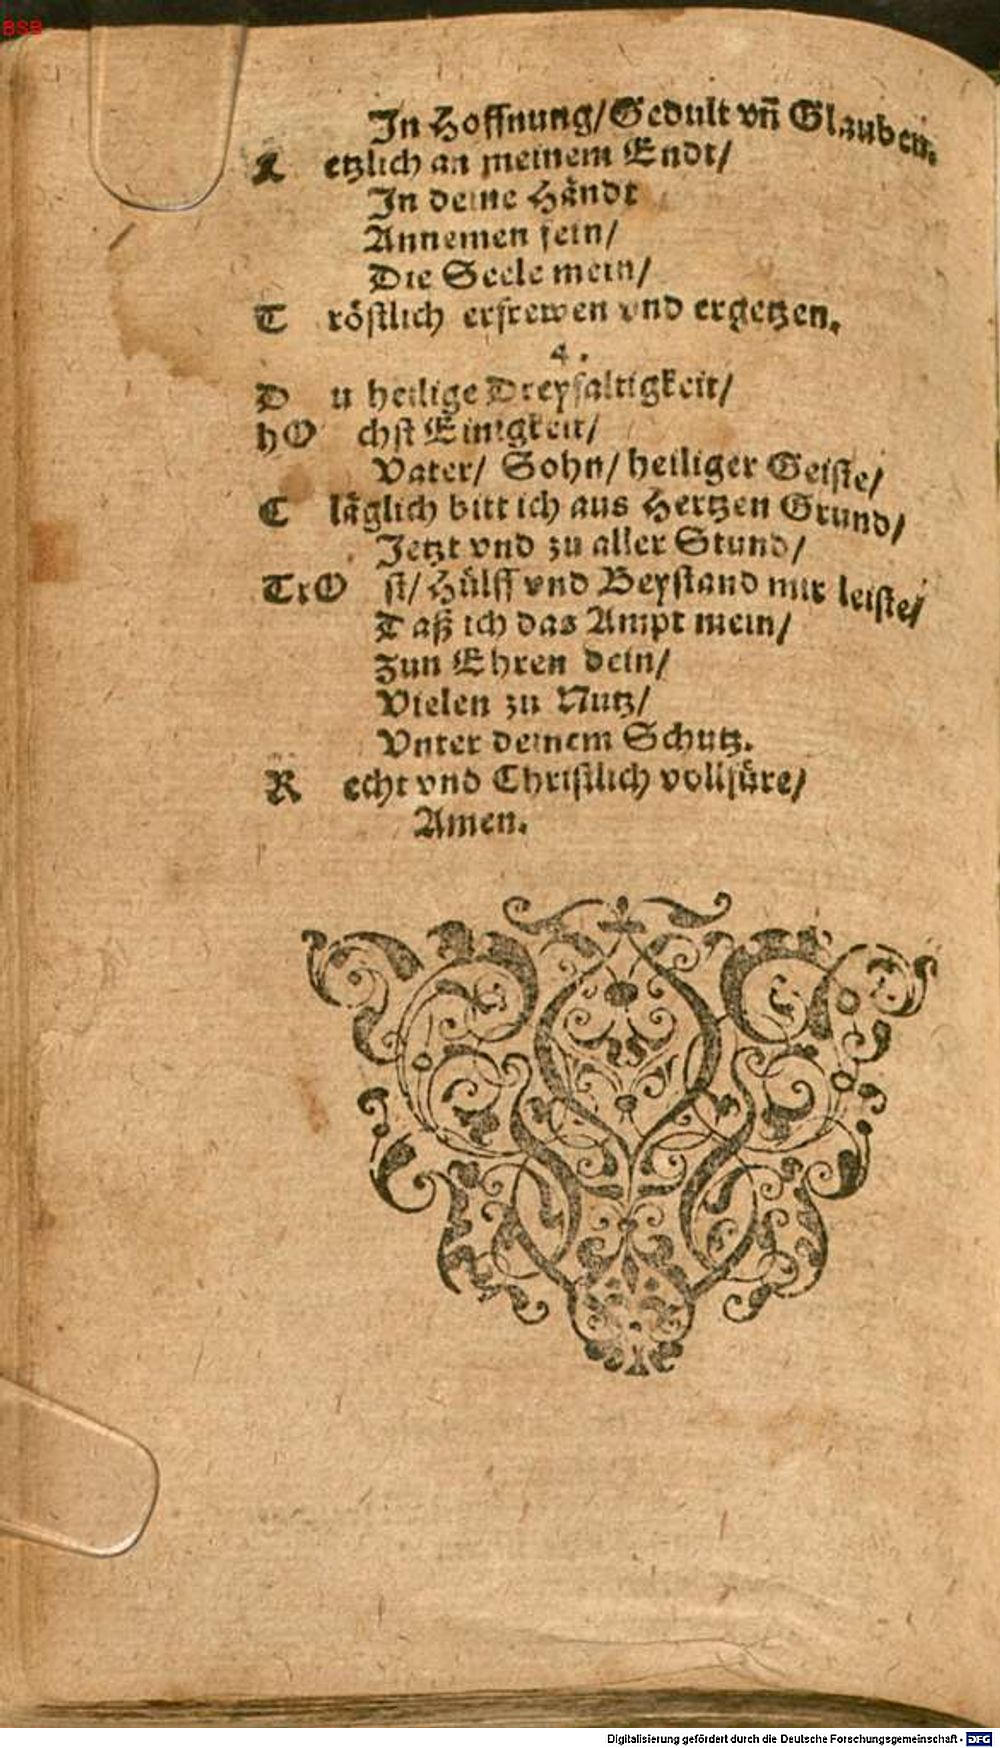 BSB
In Hoffnung/Gedult vñ Glauben.
L etzlich an meinem Endt/
In deine Händt
Annemen fein/
Die Seele mein/
T röstlich erfrewen vnd ergetzen.
4.
D u heilige Dreyfaltigkeit/
hO chst Einigkeit/
Vater/ Sohn/ heiliger Geiste/
C läglich bitt ich aus Hertzen Grund/
Jetzt vnd zu aller Stund/
TrO st/ Hülff vnd Beystand mir leiste/
Daß ich das Ampt mein/
Zun Ehren dein/
Vielen zu Nutz/
Vnter deinem Schutz.
R echt vnd Christlich vollfüre/
Amen.
Digitalisierung gefördert durch die Deutsche Forschungsgemeinschaft - DFG